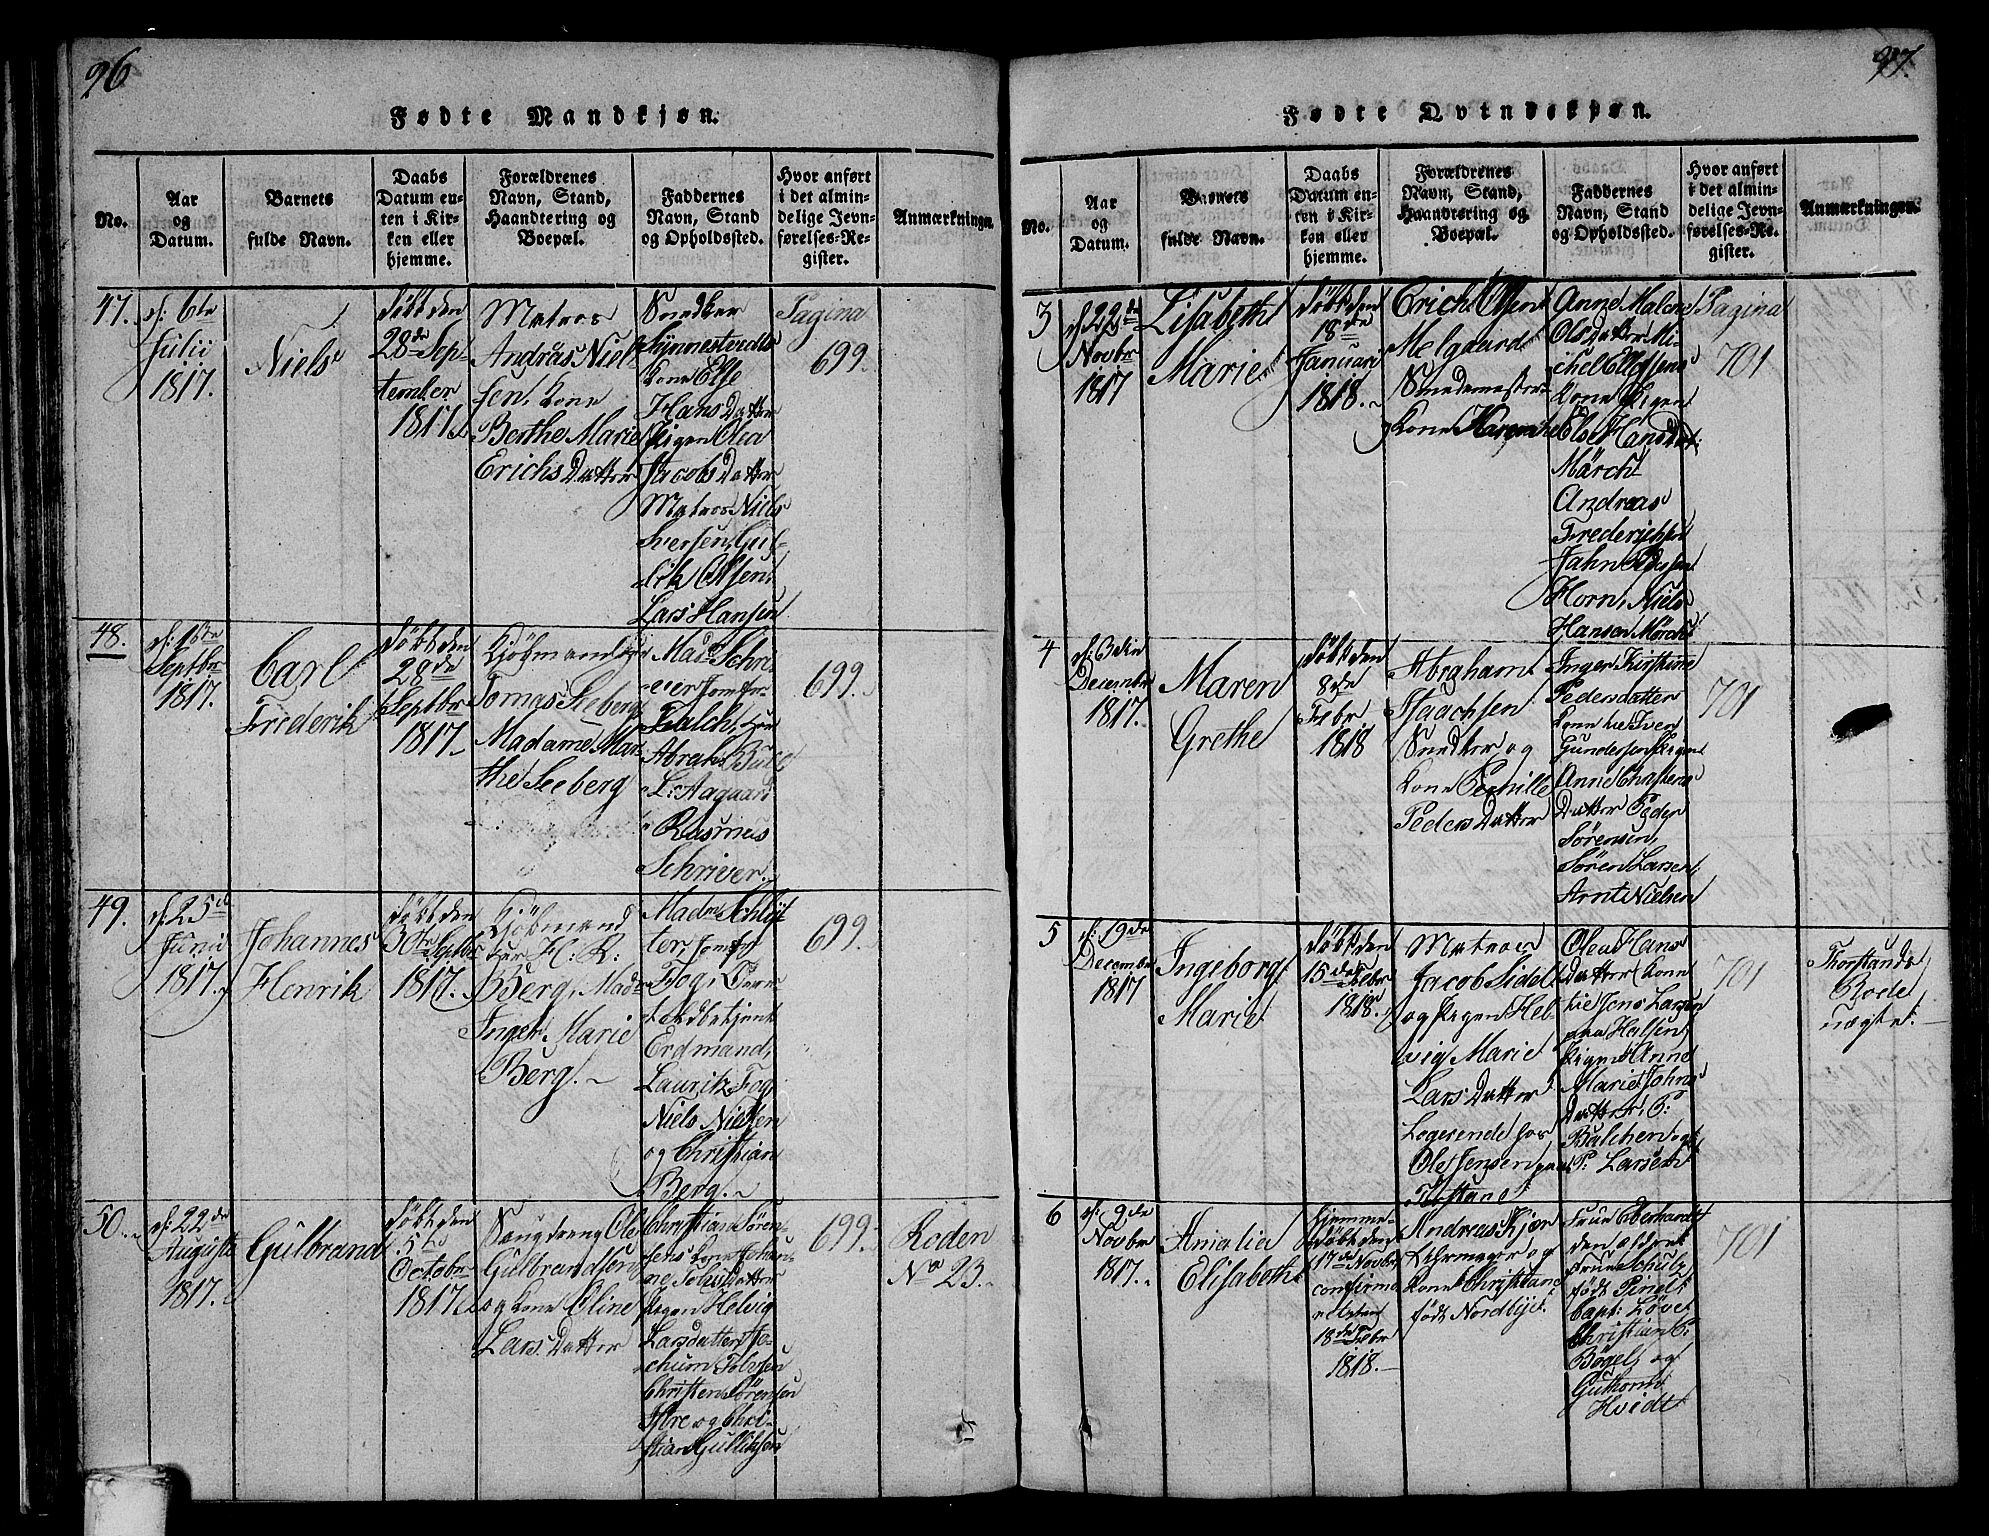 96
Fødte Mandkjøn.
No.
Aar
og
Datum.
Barnets
fulde Navn.
Daabs
Datum en-
ten i Kir-
ken eller
hjemme.
Forældrenes
Navn, Stand,
Haandtering og
Boepæl.
Faddernes
Navn, Stand
og Opholdssted.
Hvor anført
i det almin-
delige Jevn-
førelses-Re-
gister.
Anmærkninger.
47.
d: 6te
Julii
1817.
Niels
døbt den
28de Sep
tember
1817.
Matros
Andräs Niel
sen, Kone
Berthe Marie
Erichs Datter
Snedker
Kone Else
Hans Datter
Pigen Olea
Jacobs Datter
Matros Niels
Iversen, Gul-
lik Olsen,
Lars Hansen
Pagina
699.
48.
Septbr
1817.
Carl
Frederik
døbt den
28de
Septbr
1817
Kjøbmand
Tomas Seeberg
Madame Mar
the Seeberg
Mad Schri
ver Jomfr
Falch, Hr
Abrah Bull
L: Aagaard
Rasmus
Schriver.
699.
49.
d: 25de
Junii
1817.
Johannes
Henrik
døbt den
30te Septbr
1817.
Kjøbmand
Hr H: R:
Berg, Mad
Inger Marie
Berg.
Madm Schlyt
ter, Jomfr
Fog, Over
toldbetjent
Erdmand,
Lauritz Fog
Niels Nielsen
og Christian
Berg.
699.
50.
d: 22de
Augusti
1817.
Gulbrand
døbt den
5te
Octobr
1817.
Saugdreng Ole
Gulbrandsen
og Kone Oline
Lars Datter
Christian Søren-
sens Kone Johan-
ne Tolvs Datter
Pigen Helvig
Larsdatter, Jo-
chum Tolvsen
Christen Sørensen
Ifvre og Chri-
stian Gulliksen
699.
Roden
No 23.
97.
Fødte Qvindekjøn.
No.
Aar
og
Datum.
Barnets
fulde Navn.
Daabs
Datum en-
ten i Kir-
ken eller
hjemme.
Forældrenes
Navn, Stand,
Haandtering og
Boepæl.
Faddernes
Navn, Stand
og Opholdssted.
Hvor anført
i det almin-
delige Jevn-
førelses-Re-
gister.
Anmærkninger.
3
d 22de
Novbr
1817
Lisabeth
Marie
døbt den
18de
Januari
1818.
Erich Olsen
Melgaard
Smedemester
Kone Karen
Anne Malene
Ols Datter Mi-
chel Ellefsens
Kone Pigen
Else Hans Dat:
Märch
Andreas
Frederichsen
Jahn Pedersen
Horn, Niels
Hansen Märch
Pagina
701
4
d: 3die
Decembr
1817.
Maren
Grethe
døbt den
8de
Febr
1818
Abraham
Isaachsen
Snedker og
Kone Pernille
Peders Datter
Inger Kirstine
Pedersdatter
Kone til Iver
Gundersen Pigen
Anne Christens
Datter Peder
Sørensen,
Søren Larsen,
Arnt Nielsen
701
5
d: 19de
Decembr
1817
Ingeborg
Marie
døbt den
15de Febr
1818.
Matros
Jacob Sidel
og Pigen Hel
vig Marie
Lars Datter
Logerende hos
Ole Jensen paa
Flottene
Olea Hans
Datter Kone
til Jens Larsen
paa
Pigen Anne
Marie Johns
Datter, P:
Balchen og
P: Larsen
701
Thorstands
Rode
nægtet.
6
d: 9de
Novbr
1817.
Amalia
Elisabeth
hjemme-
døbt den
17de Novbr
confirme
18de Febr
1818.
Andreas Kjær
og
Kone Christiane
født Nordbye
Frue Eberhardt
Frue Schulz
født Pinel
Capt: Løvet
Christian P:
Bøgel, og
Guthorm
Hvidt
701